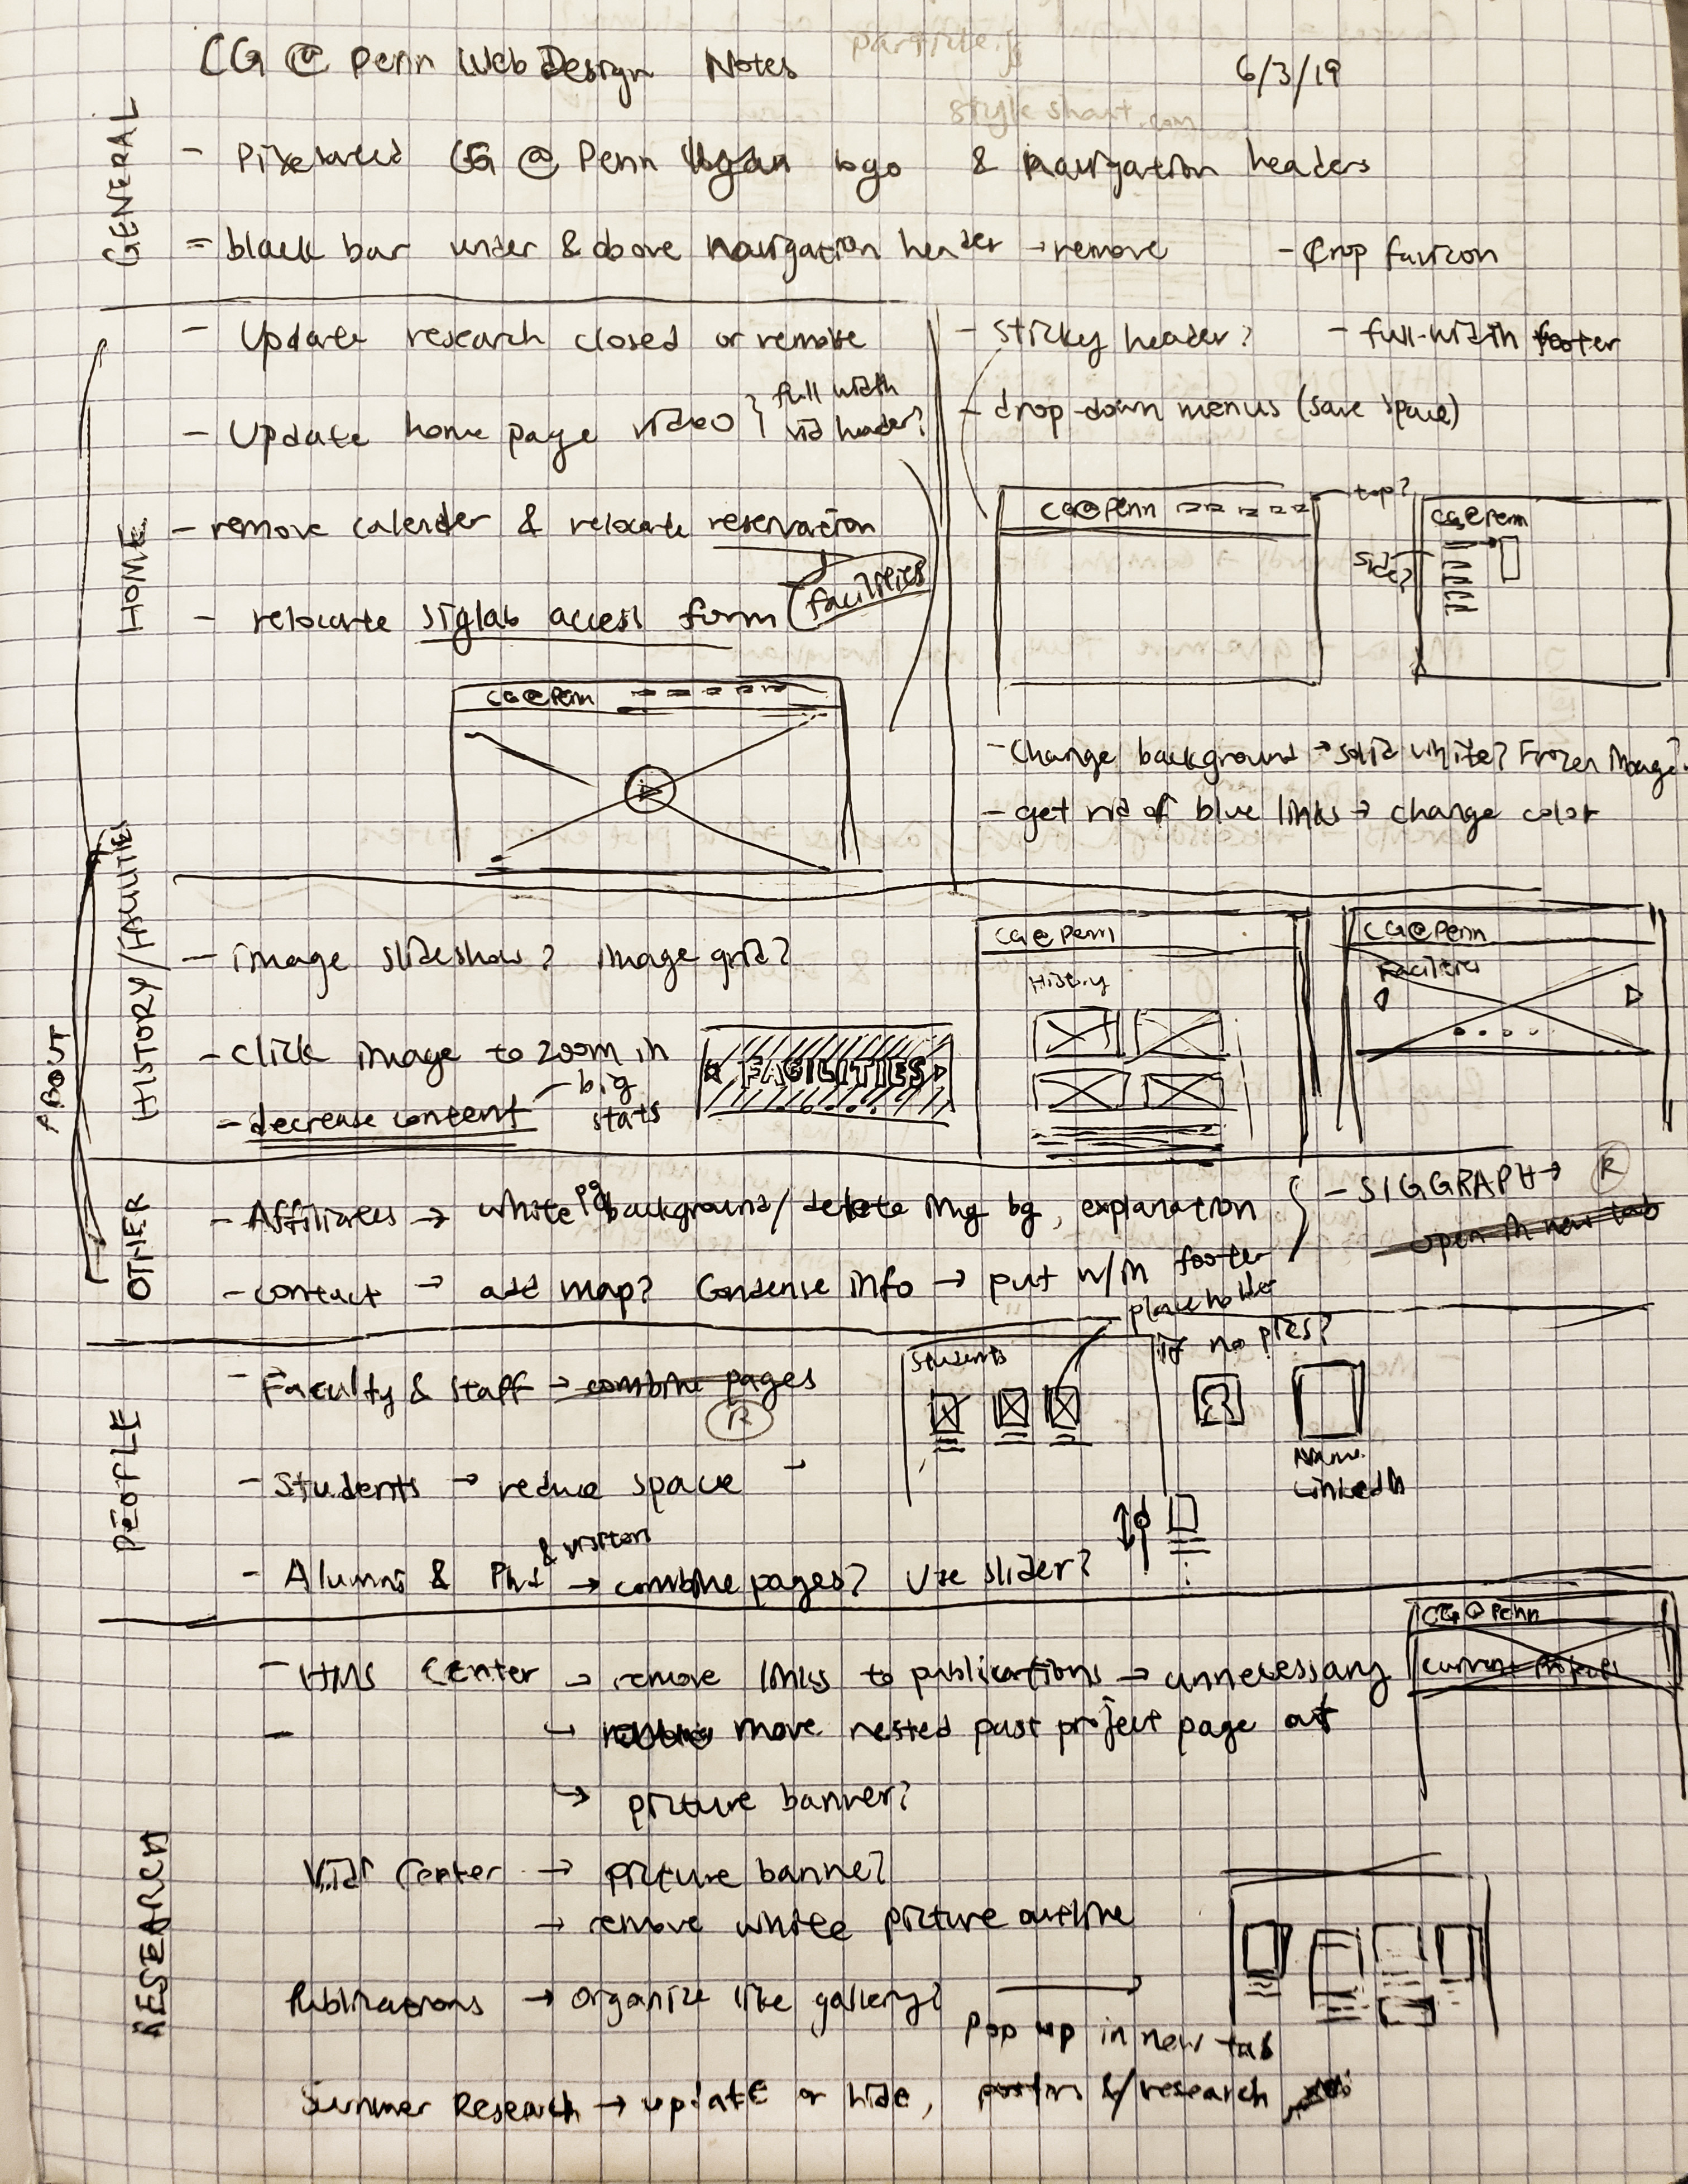 CG @ Penn Web Design Notes
6/3/19
particle.js
style shout.com
GENERAL
- Pixelated CG @ Penn logo & navigation headers
- black bar under & above navigation header → remove
- crop favicon
HOME
- Update research closed or remove
- Update home page video } full width
vid header?
- remove calender & relocate reservation
- relocate siglab access form (facilities
CG@Penn
- sticky header?
- full-width footer
- drop-down menus (save space)
CG@Penn
top?
side?
CG@Penn
- change background → solid white? Frozen image?
- get rid of blue links → change color
ABOUT
HISTORY/FACILITIES
- image slideshow? image grid?
- click image to zoom in
- decrease content - big
stats
FACILITIES
CG@Penn
History
CG@Penn
Facilities
OTHER
- Affiliates → white pg background/delete img bg, explanation
- contact → add map? Condense info → put w/in footer
- SIGGRAPH → R
open in new tab
PEOPLE
- Faculty & Staff → combine pages
R
- Students → reduce space →
- Alumni & PhD & visitors → combine pages? Use slider?
Students
placeholder
if no pics?
Name
LinkedIn
RESEARCH
- HMS Center → remove links to publications → unnecessary
- → move nested past project page out
→ picture banner?
CG@Penn
Current Projects
ViDi Center → picture banne?
→ remove white picture outline
Publications → organize like gallery?
pop up in new tab
Summer Research → update or hide, posters &/research